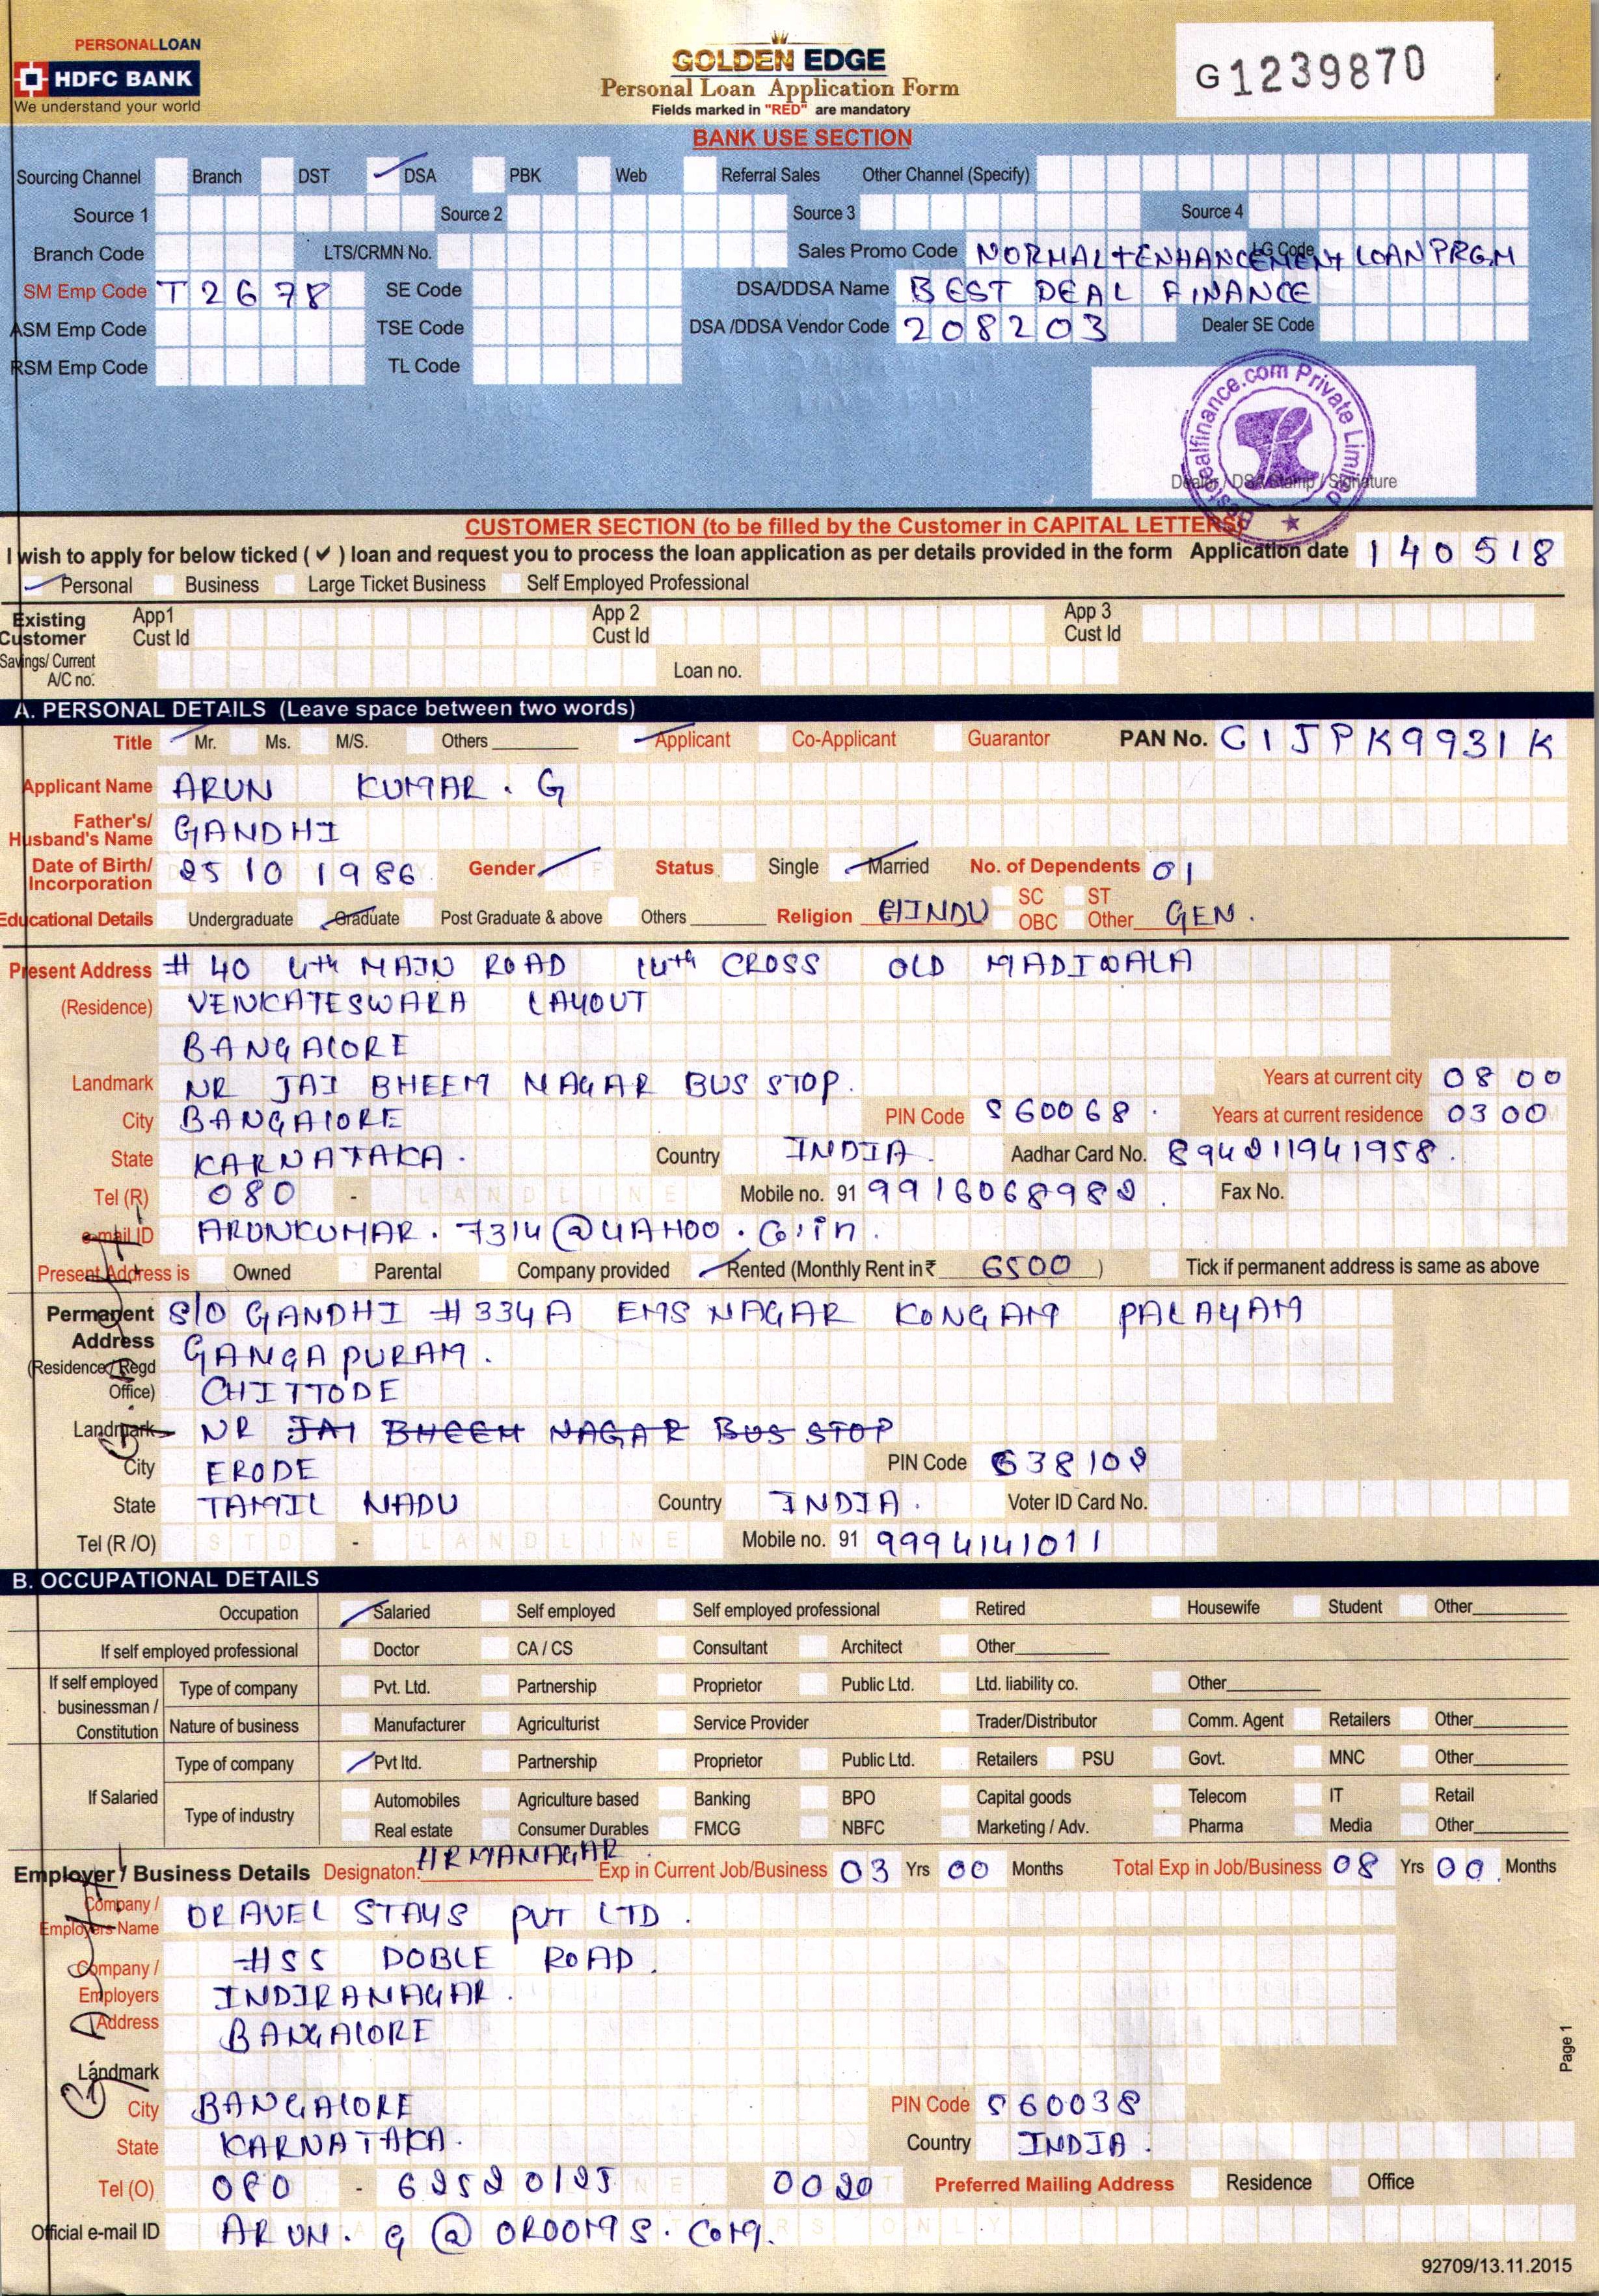 PERSONALLOAN
HDFC BANK
We understand your world
GOLDEN EDGE
Personal Loan Application Form
Fields marked in "RED" are mandatory
G1239870
BANK USE SECTION
Sourcing Channel Branch DST DSA PBK Web Referral Sales Other Channel (Specify)
Source 1 Source 2 Source 3 Source 4
Branch Code LTS/CRMN No. Sales Promo Code NORMAL+ENHANCEMENT LOAN PRGM LG Code
SM Emp Code T2678 SE Code DSA/DDSA Name BEST DEAL FINANCE
ASM Emp Code TSE Code DSA /DDSA Vendor Code 208203 Dealer SE Code
RSM Emp Code TL Code
Bestdealfinance.com Private Limited
Dealer / DSA Stamp / Signature
CUSTOMER SECTION (to be filled by the Customer in CAPITAL LETTERS)
I wish to apply for below ticked (✔) loan and request you to process the loan application as per details provided in the form Application date 140518
Personal Business Large Ticket Business Self Employed Professional
Existing Customer App1 Cust Id App 2 Cust Id App 3 Cust Id
Savings/ Current A/C no. Loan no.
A. PERSONAL DETAILS (Leave space between two words)
Title Mr. Ms. M/S. Others Applicant Co-Applicant Guarantor PAN No. CIJPK9931K
Applicant Name ARUN KUMAR . G
Father's/ Husband's Name GANDHI
Date of Birth/ Incorporation 25 10 1986 Gender F Status Single Married No. of Dependents 01
Educational Details Undergraduate Graduate Post Graduate & above Others Religion HINDU SC ST OBC Other GEN.
Present Address # 40 4th MAIN ROAD 14th CROSS OLD MADIWALA
(Residence) VENKATESWARA LAYOUT
BANGALORE
Landmark NR JAI BHEEM NAGAR BUS STOP. Years at current city 08 00
City BANGALORE PIN Code 560068 . Years at current residence 03 00
State KARNATAKA. Country INDIA. Aadhar Card No. 894211941958.
Tel (R) 080 - LANDLINE Mobile no. 91 9916068982. Fax No.
e-mail ID ARUNKUMAR.7314@YAHOO.CO.in.
Present Address is Owned Parental Company provided Rented (Monthly Rent in ₹ 6500 ) Tick if permanent address is same as above
Permanent Address S/O GANDHI #334A EMS NAGAR KONGAM PALAYAM
(Residence/ Regd Office) GANGAPURAM.
CHITTODE
Landmark NR JAI BHEEM NAGAR BUS STOP
City ERODE PIN Code 638102
State TAMIL NADU Country INDIA. Voter ID Card No.
Tel (R /O) STD - LANDLINE Mobile no. 91 9994141011
B. OCCUPATIONAL DETAILS
Occupation Salaried Self employed Self employed professional Retired Housewife Student Other
If self employed professional Doctor CA / CS Consultant Architect Other
If self employed businessman / Constitution Type of company Pvt. Ltd. Partnership Proprietor Public Ltd. Ltd. liability co. Other
Nature of business Manufacturer Agriculturist Service Provider Trader/Distributor Comm. Agent Retailers Other
If Salaried Type of company Pvt ltd. Partnership Proprietor Public Ltd. Retailers PSU Govt. MNC Other
Type of industry Automobiles Agriculture based Banking BPO Capital goods Telecom IT Retail
Real estate Consumer Durables FMCG NBFC Marketing / Adv. Pharma Media Other
Employer / Business Details Designaton: HR MANAGAR Exp in Current Job/Business 03 Yrs 00 Months Total Exp in Job/Business 08 Yrs 00 Months
Company / Employers Name ORAVEL STAYS PVT LTD .
Company / Employers Address #55 DOBLE ROAD.
INDIRANAGAR.
BANGALORE
Landmark
City BANGALORE PIN Code 560038
State KARNATAKA. Country INDIA.
Tel (O) 080 - 62520125 0020 Preferred Mailing Address Residence Office
Official e-mail ID ARUN.G@OROOMS.COM.
Page 1
92709/13.11.2015